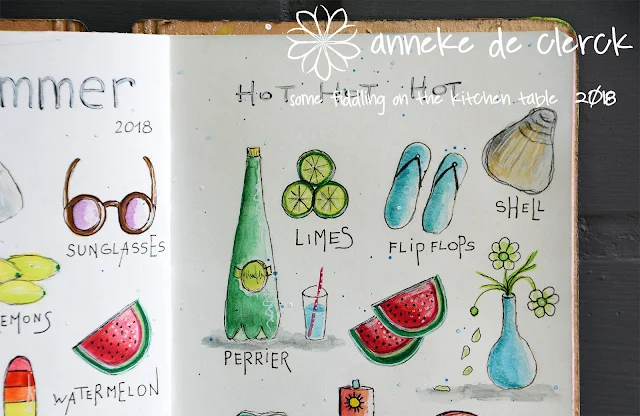 anneke de clerck
some fiddling on the kitchen table 2018
mmer
2018
SUNGLASSES
EMONS
WATERMELON
HOT HOT HOT
LIMES
FLIP FLOPS
SHELL
PERRIER